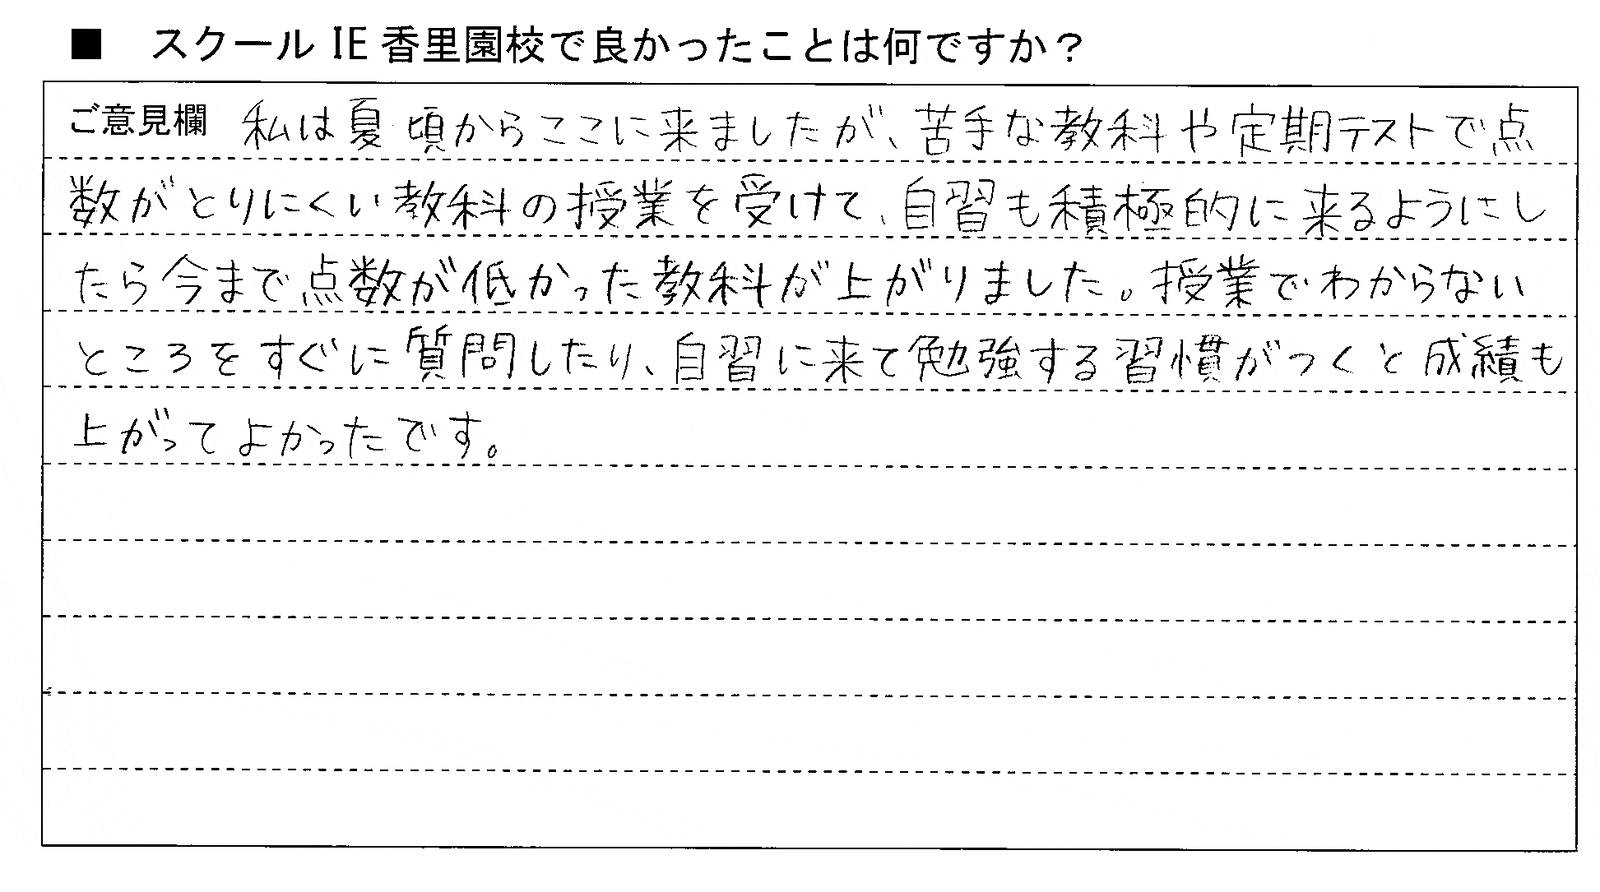 ■ スクール IE 香里園校で良かったことは何ですか？
ご意見欄 私は夏頃からここに来ましたが、苦手な教科や定期テストで点
数がとりにくい教科の授業を受けて、自習も積極的に来るようにし
たら今まで点数が低かった教科が上がりました。授業でわからない
ところをすぐに質問したり、自習に来て勉強する習慣がつくと成績も
上がってよかったです。